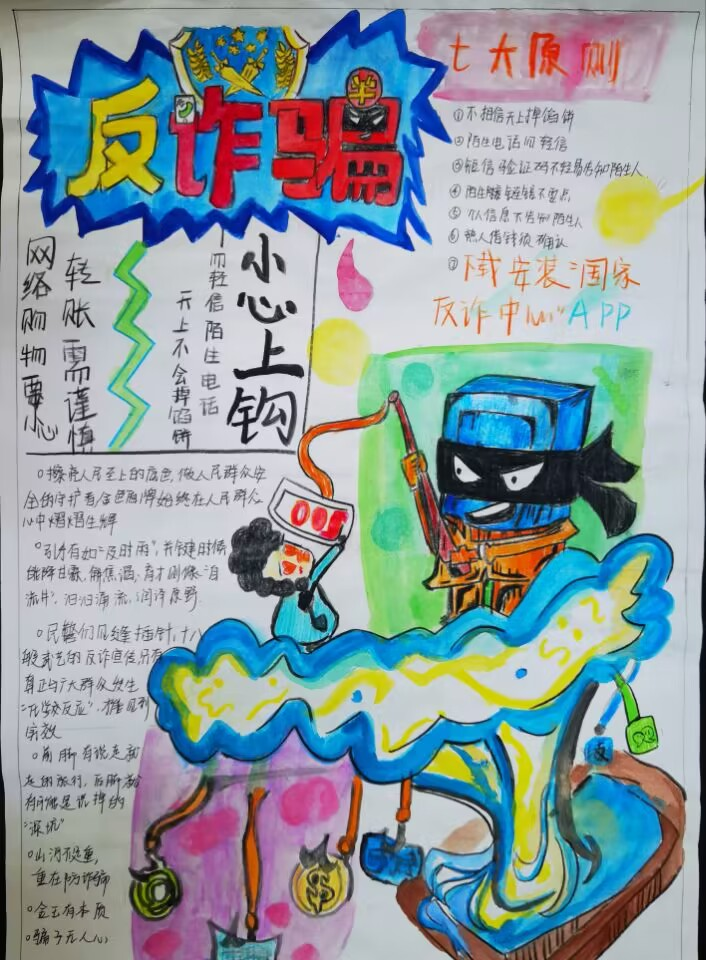 反诈骗
七大原则
①不相信天上掉馅饼
②陌生电话勿轻信
③短信验证码不轻易告知陌生人
④陌生链接不要点
⑤个人信息不告知陌生人
⑥熟人借钱须确认
⑦下载安装"国家
反诈中心"APP
网络购物要小心
转账需谨慎
天上不会掉馅饼
不要轻信陌生电话
小心上钩
擦亮人民至上的底色,做人民群众安
全的守护者,金色盾牌始终在人民群众
心中熠熠生辉
引才有如"及时雨",关键时候
能降甘霖,解焦渴,育才则像"自
流井",汩汩涌流,润泽原野.
民警们见缝插针,十八
般武艺的反诈宣传只有
真正与广大群众发生
"化学反应",才能见到
实效
前脚有说走就
走的旅行,后脚就
有可能是说掉的
"深坑"
山河不足重,
重在防诈骗
金玉有本质
骗子无人心
100
$